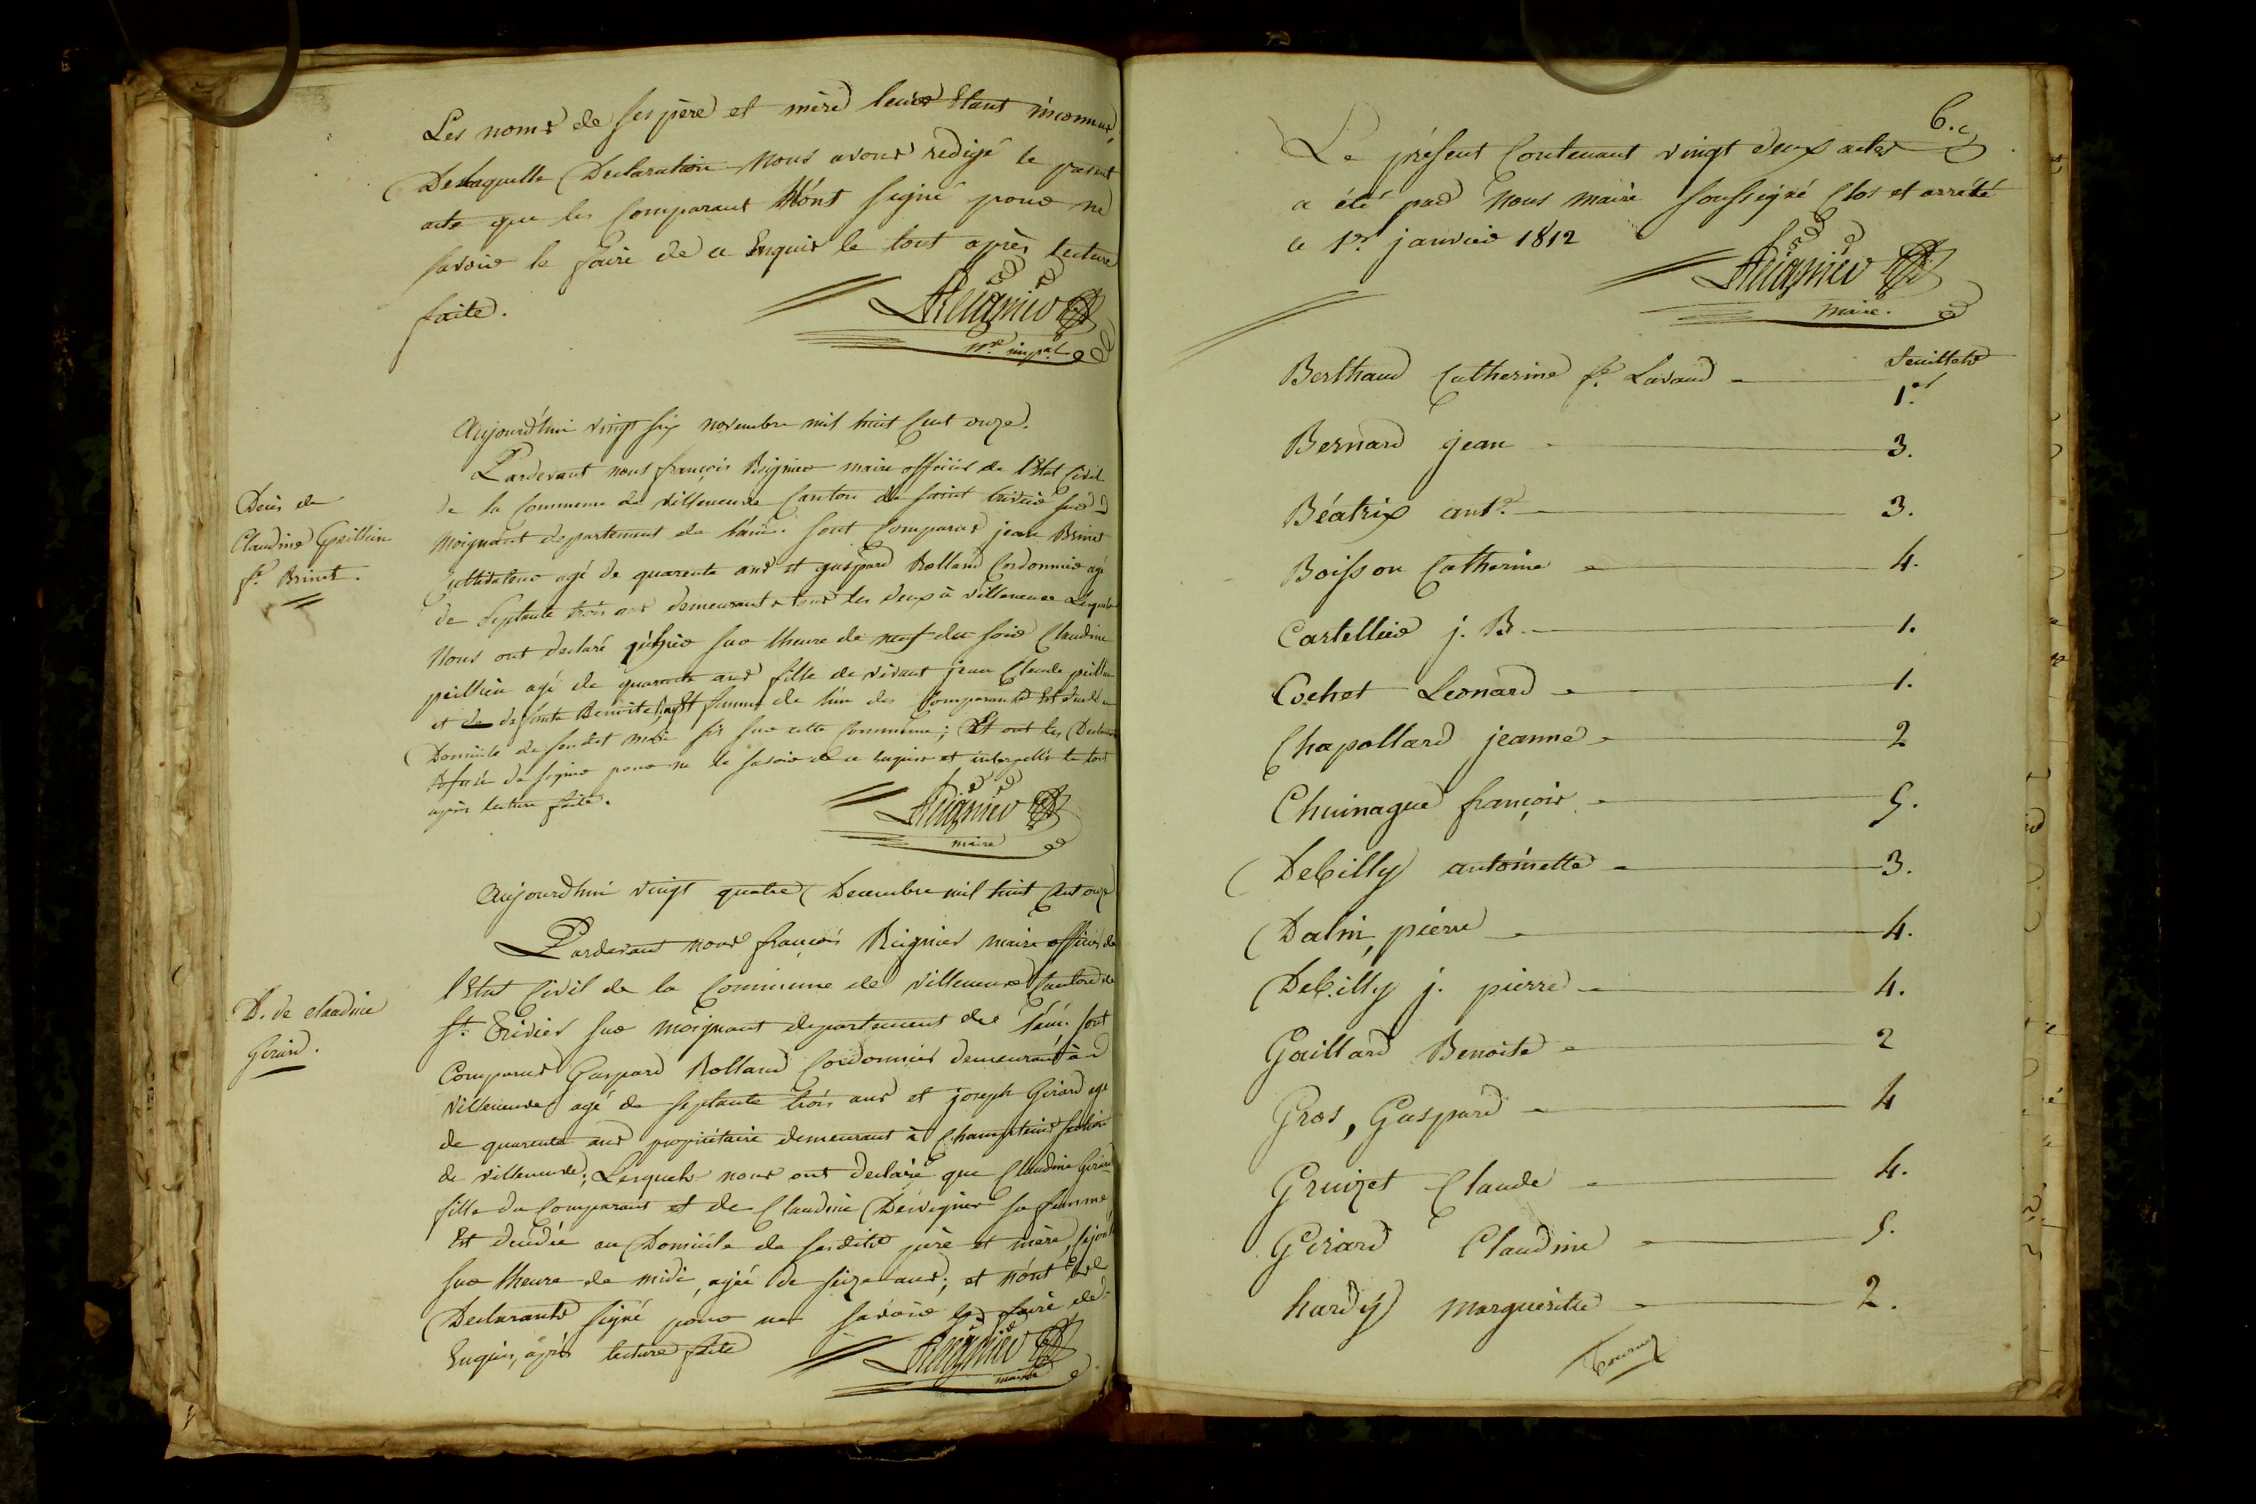 Les noms de ses père et mère leurs Etant inconnus,
De laquelle Declaration Nous avons redigé le present
acte que les Comparant N'ont signé pour ne
savoir le faire de ce Enquis le tout après lecture
faite.
Reignier
maire
Aujourd'hui vingt six novembre mil huit Cent onze.
Pardevant nous françois Reignier maire officier de l'Etat Civil
de la Commune de villeneuve Canton de saint trivier sur
Moignant departement de l'ain. sont Comparus jean Brinet
Cultivateur agé de quarante ans et gaspard Rolland Cordonnier agé
de septante trois ans demeurants tous les deux à villeneuve Lesquels
Nous ont declaré qu'hier sur lheure de neuf du soir Claudine
peillien agé de quarante ans fille de vivant jean Claude peillien
et de defunte Benoite femme de l'un des Comparants Est decedée au
Domicile de sondit mari sis sur cette Commune; Et ont les Declarants
de signer pour ne le savoir de ce enquis et interpellés le tout
après lecture faite.
Reignier
maire
Decès de
Claudine Peillien
fe. Brinet.
Aujourd'hui vingt quatre Decembre mil huit Cent onze
Pardevant nous françois Reignier maire officier de
l'Etat Civil de la Commune de villeneuve Canton de
St. Trivier sur Moignant departement de l'ain. sont
Comparus Gaspard Rolland Cordonnier demeurant à
villeneuve agé de septante trois ans et joseph Girard agé
de quarante ans propriétaire demeurant à Champteins section
de villeneuve; Lesquels nous ont declaré que Claudine Girard
fille du Comparant et de Claudine Desvignes sa femme
Est decedée au Domicile de sesdits père et mère,
sur lheure de midi, agée de seize ans; et n'ont les
Declarants signé pour ne savoir le faire de
Enquis, après lecture faite
Reignier
maire
D. de claudine
Girard.
6.e
Le présent Contenant vingt deux actes
a été par Nous maire soussigné Clos et arrêté
le 1er. janvier 1812
Reignier
maire.
feuillets
Berthaud Catherine fe. Lavaud 1er
Bernard jean 3.
Béatrix ante. 3.
Boisson Catherine 4.
Cartellier j. B. 1.
Cochet Leonard 1.
Chapollard jeanne 2
Chuinague françois 5.
DeCilly antoinette 3.
Dalin, pierre 4.
DeCilly j. pierre 4.
Gaillard Benoite 2
Gros, Gaspard 4
Gruizet Claude 4.
Girard Claudine 5.
hardy Marguerite 2.
Tournez